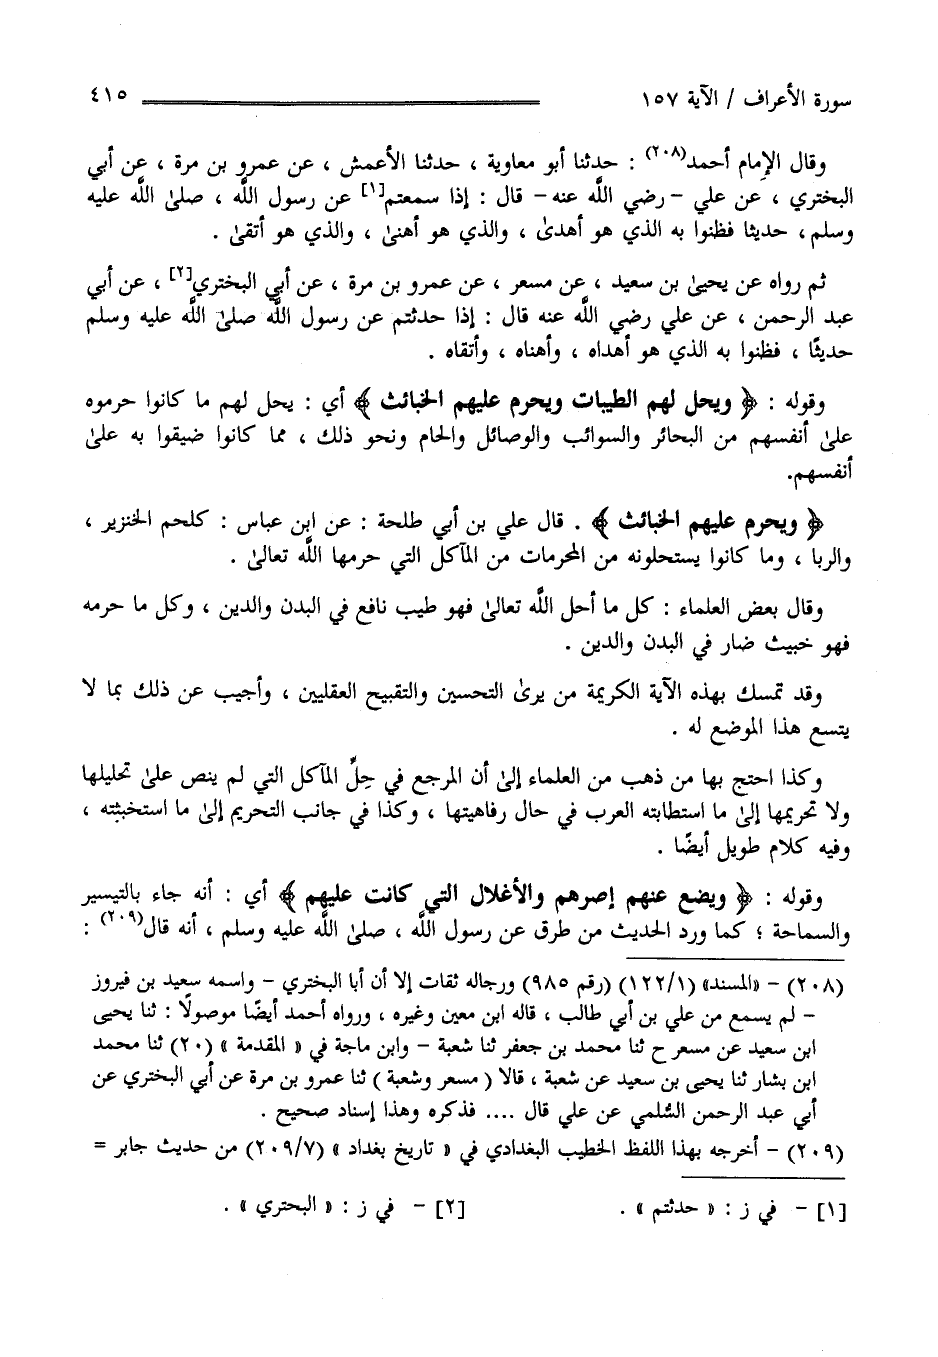 سورة الأعراف / الآية ١٥٧ ٤١٥
وقال الإمام أحمد(٢٠٨) : حدثنا أبو معاوية ، حدثنا الأعمش ، عن عمرو بن مرة ، عن أبي
البختري ، عن علي – رضي اللَّه عنه – قال : إذا سمعتم[١] عن رسول اللَّه ، صلىٰ اللَّه عليه
وسلم، حديثا فظنوا به الذي هو أهدىٰ ، والذي هو أهنىٰ ، والذي هو أتقىٰ .
ثم رواه عن يحيىٰ بن سعيد ، عن مسعر ، عن عمرو بن مرة ، عن أبي البختري[٢] ، عن أبي
عبد الرحمن ، عن علي رضي اللَّه عنه قال : إذا حدثتم عن رسول اللَّه صلىٰ اللَّه عليه وسلم
حديثًا ، فظنوا به الذي هو أهداه ، وأهناه ، وأتقاه .
وقوله : ﴿ ويحل لهم الطيبات ويحرم عليهم الخبائث ﴾ أي : يحل لهم ما كانوا حرموه
علىٰ أنفسهم من البحائر والسوائب والوصائل والحام ونحو ذلك ، مما كانوا ضيقوا به علىٰ
أنفسهم.
﴿ ويحرم عليهم الخبائث ﴾ . قال علي بن أبي طلحة : عن ابن عباس : كلحم الخنزير ،
والربا ، وما كانوا يستحلونه من المحرمات من المآكل التي حرمها اللَّه تعالىٰ .
وقال بعض العلماء : كل ما أحل اللَّه تعالىٰ فهو طيب نافع في البدن والدين ، وكل ما حرمه
فهو خبيث ضار في البدن والدين .
وقد تمسك بهذه الآية الكريمة من يرىٰ التحسين والتقبيح العقليين ، وأجيب عن ذلك بما لا
يتسع هذا الموضع له .
وكذا احتج بها من ذهب من العلماء إلىٰ أن المرجع في حِلِّ المآكل التي لم ينص علىٰ تحليلها
ولا تحريمها إلىٰ ما استطابته العرب في حال رفاهيتها ، وكذا في جانب التحريم إلىٰ ما استخبثِته ،
وفيه كلام طويل أيضًا .
وقوله : ﴿ ويضع عنهم إصرهم والأغلال التي كانت عليهم ﴾ أي : أنه جاء بالتيسير
والسماحة ؛ كما ورد الحديث من طرق عن رسول اللَّه ، صلىٰ اللَّه عليه وسلم ، أنه قال(٢٠٩) :
(٢٠٨) – «المسند» (١٢٢/١) (رقم ٩٨٥) ورجاله ثقات إلا أن أبا البختري – واسمه سعيد بن فيروز
– لم يسمع من علي بن أبي طالب ، قاله ابن معين وغيره ، ورواه أحمد أيضًا موصولًا : ثنا يحيى
ابن سعيد عن مسعر ح ثنا محمد بن جعفر ثنا شعبة – وابن ماجة في « المقدمة » (٢٠) ثنا محمد
ابن بشار ثنا يحيى بن سعيد عن شعبة ، قالا ( مسعر وشعبة ) ثنا عمرو بن مرة عن أبي البختري عن
أبي عبد الرحمن السُّلمي عن علي قال .... فذكره وهذا إسناد صحيح .
(٢٠٩) – أخرجه بهذا اللفظ الخطيب البغدادي في « تاريخ بغداد » (٢٠٩/٧) من حديث جابر =
[١] – في ز : « حدثتم » . [٢] – في ز : « البحتري » .